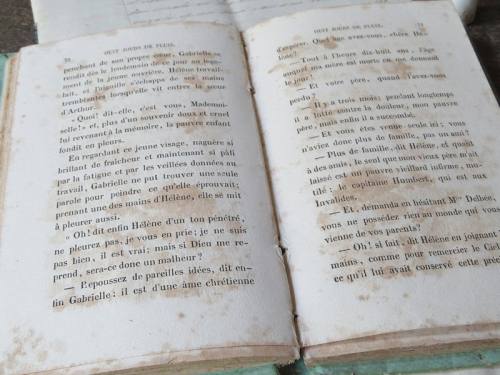 HUIT JOURS DE PLUIE.
penchant de son propre cœur, Gabrielle se
rendit dès le lendemain de ce jour au loge-
ment de la jeune ouvrière. Hélène travail-
lait, et l'aiguille s'échappa de ses mains
tremblantes lorsqu'elle vit entrer la sœur
d'Arthur.
« Quoi! dit-elle, c'est vous, Mademoi-
selle! » et, plus d'un souvenir doux et cruel
lui revenant à la mémoire, la pauvre enfant
fondit en pleurs.
En regardant ce jeune visage, naguère si
brillant de fraîcheur et maintenant si pâli
par la fatigue et par les veillées données au
travail, Gabrielle ne put trouver une seule
parole pour peindre ce qu'elle éprouvait;
prenant une des mains d'Hélène, elle se mit
à pleurer aussi.
« Oh! dit enfin Hélène d'un ton pénétré,
ne pleurez pas, je vous en prie; je ne suis
pas bien, il est vrai; mais si Dieu me re-
prend, sera-ce donc un malheur?
— Repoussez de pareilles idées, dit en-
fin Gabrielle; il est d'une âme chrétienne
HUIT JOURS DE PLUIE.
d'espérer. Quel âge avez-vous, chère Hé-
lène!
— Tout à l'heure dix-huit ans, l'âge
auquel ma mère est morte en me donnant
le jour!
— Et votre père, quand l'avez-vous
perdu?
— Il y a trois mois; pendant longtemps
il a lutté contre la douleur, mon pauvre
père, mais enfin il a succombé.
— Et vous êtes venue seule ici? vous
n'aviez donc plus de famille, pas un ami?
— Plus de famille, dit Hélène, et quant
à des amis, le seul que mon vieux père m'ait
laissé est un pauvre vieillard infirme, mu-
tilé: le capitaine Humbert, qui est aux
Invalides.
— Et, demanda en hésitant Mlle Delbés,
vous ne possédez rien au monde qui vous
vienne de vos parents?
— Oh! si fait, dit Hélène en joignant les
mains, comme pour remercier le Ciel
ce qu'il lui avait conservé cette préci